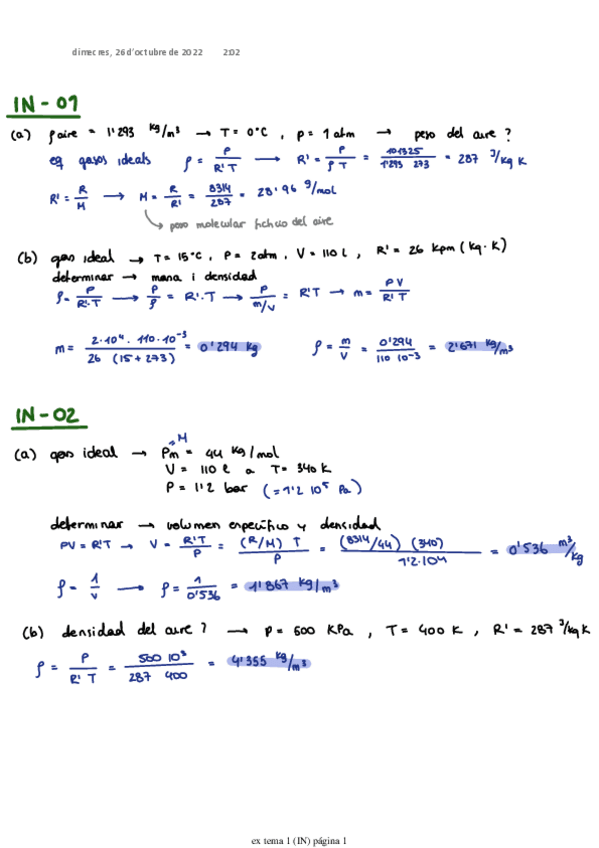 dimecres, 26 d'octubre de 2022 2:02
IN - 01
(a) ρ aire = 1'293 kg/m³ → T = 0°C , p = 1 atm → peso del aire ?
eq gasos ideals ρ = P / R'T → R' = P / ρT = 101325 / 1'293 273 = 287 J/kg K
R' = R / M → M = R / R' = 8314 / 287 = 28'96 g/mol
peso molecular ficticio del aire
(b) gas ideal → T = 15°C , P = 2 atm , V = 110 l , R' = 26 Kpm (kg · K)
determinar → masa i densidad
ρ = P / R'·T → P / ρ = R'·T → P / m/v = R'T → m = PV / R'T
m = 2·10⁴ · 110·10⁻³ / 26 (15+273) = 0'294 kg ρ = m / V = 0'294 / 110 10⁻³ = 2'671 kg/m³
IN - 02
(a) gas ideal → Pm = 44 kg/mol
→ M
V = 110 l a T = 340 K
P = 1'2 bar (= 1'2 10⁵ Pa)
determinar → volumen específico y densidad
PV = R'T → V = R'T / P = (R/M) T / P = (8314/44) (340) / 1'2·104 = 0'536 m³/kg
ρ = 1 / v → ρ = 1 / 0'536 = 1'867 kg/m³
(b) densidad del aire ? → P = 500 KPa , T = 400 K , R' = 287 J/kg K
ρ = P / R' T = 500 10³ / 287 400 = 4'355 kg/m³
ex tema 1 (IN) página 1